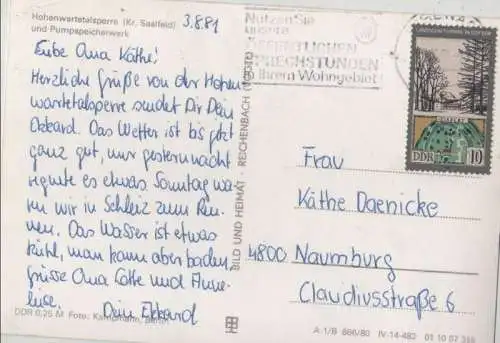 Hohenwartetalsperre (Kr. Saalfeld)
und Pumpspeicherwerk
3.8.81
Liebe Oma Käthe!
Herzliche Grüße von der Hohen
wartetalsperre sendet Dir Dein
Ekkard. Das Wetter ist bis jetzt
ganz gut, nur gestern nacht
regnete es etwas. Sonntag wa-
ren wir in Schleiz zum Ren-
nen. Das Wasser ist etwas
kühl, man kann aber baden.
Grüsse Oma Lotte und Anne-
liese.
Dein Ekkard
DDR 0,25 M Foto: Kampmann, Berlin
BILD UND HEIMAT · REICHENBACH (VOGTL)
Nutzen Sie
unsere
ÖFFENTLICHEN
SPRECHSTUNDEN
in Ihrem Wohngebiet!
DDR
10
Frau
Käthe Daenicke
4800 Naumburg
Claudiusstraße 6
A 1/B 866/80 IV-14-482 01 10 07 355